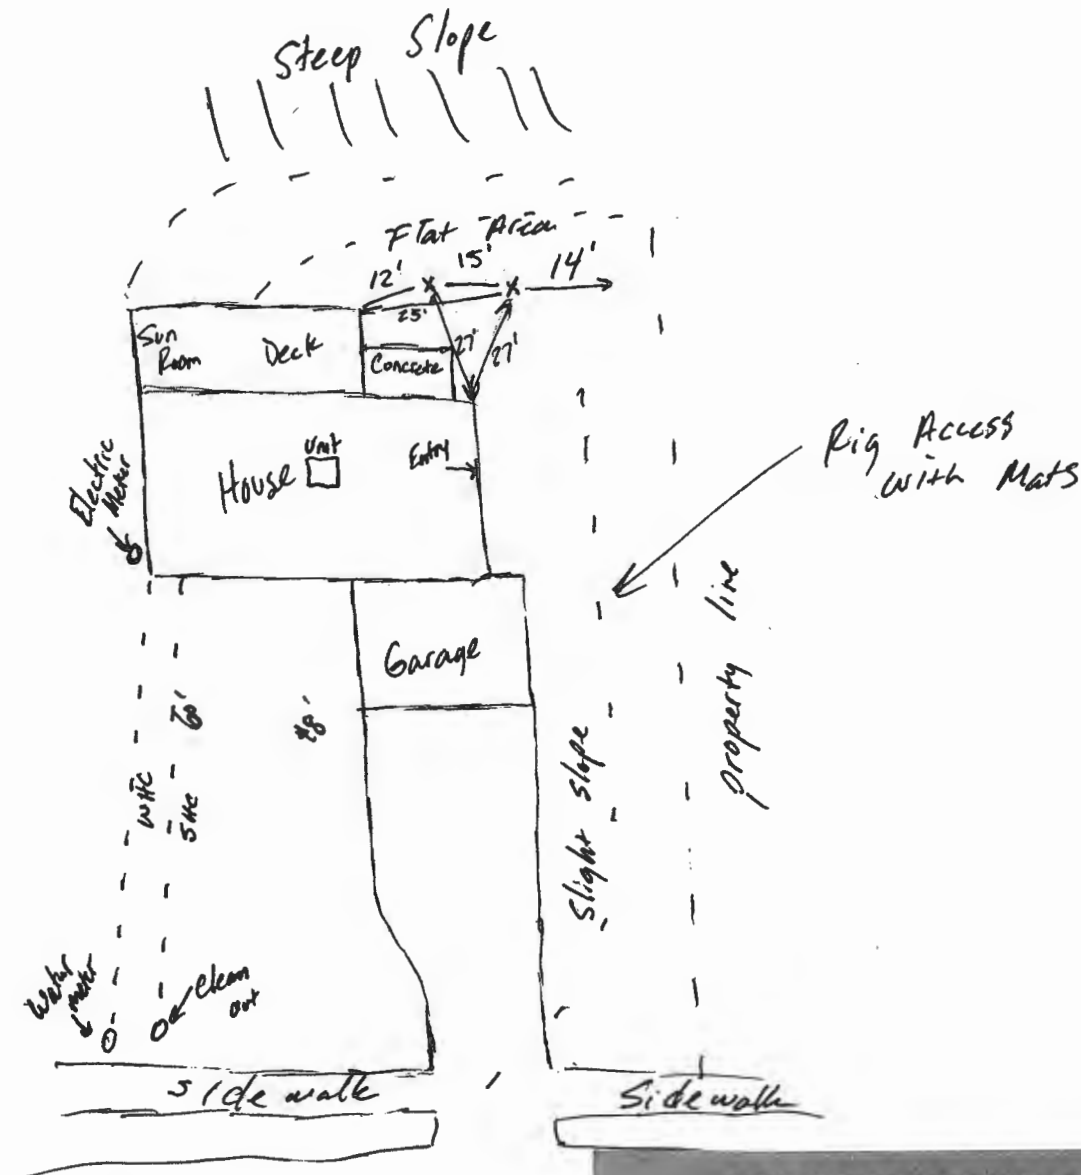 Steep Slope
Flat Area
12'
15'
14'
25'
27'
27'
Sun
Room
Deck
Concrete
Electric
Meter
House
Unit
Entry
Rig Access
with Mats
Garage
WHC
SHC
60'
Slight Slope
property line
Water
meter
Clean
out
Sidewalk
Sidewalk